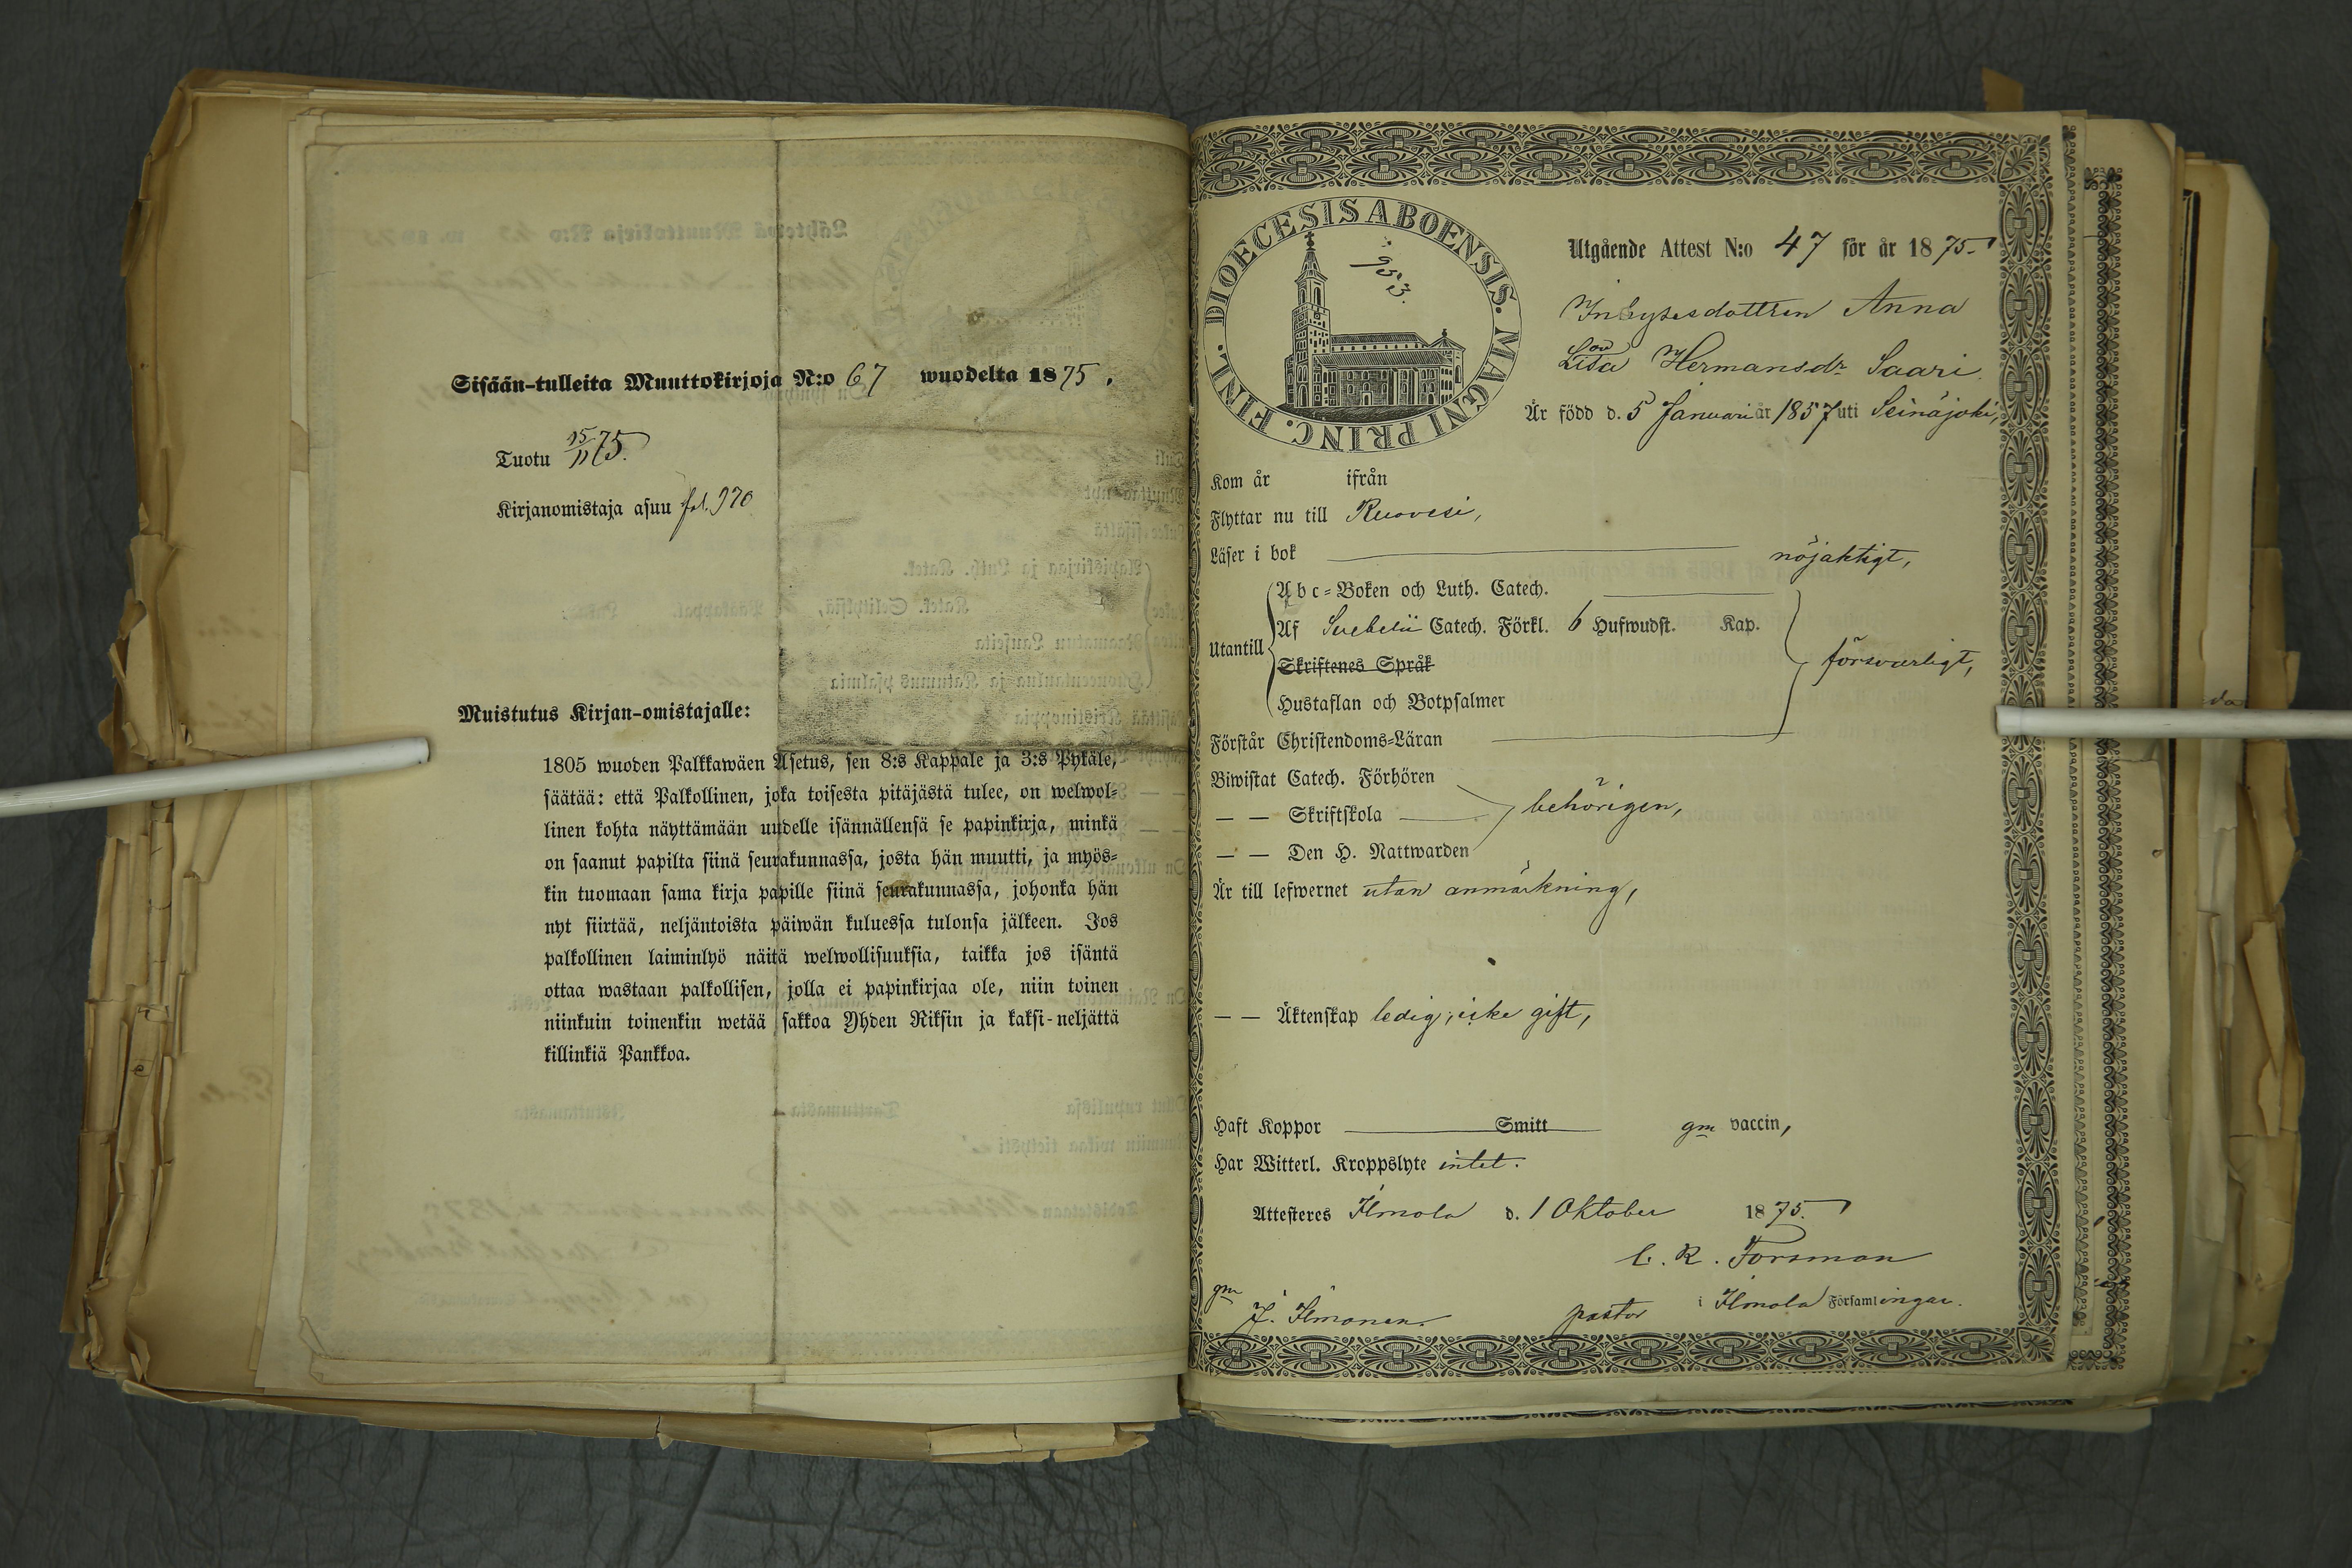 Sisään-tulleita Muuttokirjoja N:o 67 wuodelta 1875.
Tuotu 15/11 75.
Kirjanomistaja asuu fol. 970
Muistutus Kirjan-omistajalle:
1805 wuoden Palkkawäen Asetus, sen 8:s Kappale ja 3:s Pykäle,
säätää: että Palkollinen, joka toisesta pitäjästä tulee, on welwol-
linen kohta näyttämään uudelle isännällensä se papinkirja, minkä
on saanut papilta siinä seurakunnassa, josta hän muutti, ja myös-
kin tuomaan sama kirja papille siinä seurakunnassa, johonka hän
nyt siirtää, neljäntoista päiwän kuluessa tulonsa jälkeen. Jos
palkollinen laiminlyö näitä welwollisuuksia, taikka jos isäntä
ottaa wastaan palkollisen, jolla ei papinkirjaa ole, niin toinen
niinkuin toinenkin wetää sakkoa Yhden Riksin ja kaksi-neljättä
killinkiä Pankkoa.
DIOECESIS ABOENSIS. MAGNI PRINC. FINL.
953.
Utgående Attest N:o 47 för år 1875.
Inhysesdottren Anna
Lisa Hermansdr Saari
Är född d. 5 Januari år 1857 uti Seinäjoki,
Kom år ifrån
Flyttar nu till Ruovesi,
Läser i bok nöjaktigt,
Utantill
Abc-Boken och Luth. Catech.
Af Svebelii Catech. Förkl. 6 Hufwudst. Kap.
Skriftenes Språk
försvarligt,
Hustaflan och Botpsalmer
Förstår Christendoms-Läran
Biwistat Catech. Förhören
— — Skriftskola behörigen,
— — Den H. Nattwarden
Är till lefwernet utan anmärkning,
— — Äktenskap ledig, icke gift,
Haft Koppor Smitt gm vaccin,
Har Witterl. Kroppslyte intet.
Attesteres Ilmola d. 1 Oktober 1875.
C. R. Forsman
gm J. Ilmonen. pastor i Ilmola Församlingar.